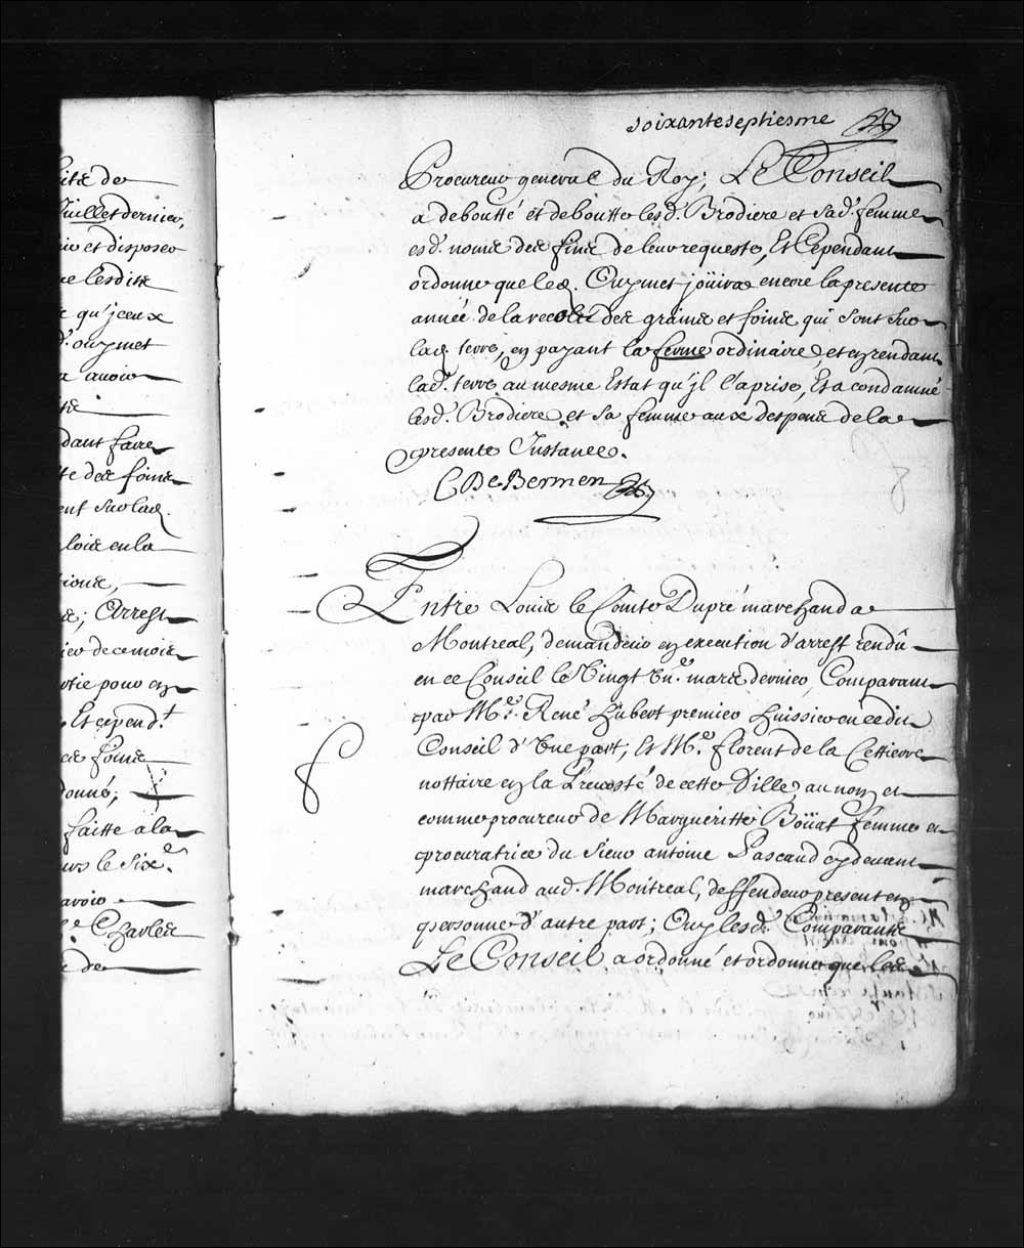 ité de
Juillet dernier,
et disposer
lesdits
qu'jceux
d. ouymet
avoir
dant faire
te des foins
ent sur lad.
lois en la
ions,
Arrest
de ce mois
pour en
Et cepend.t
foins
donné;
faitte a la
le six.e
avoir
Charles
de
soixante septiesme
Procureur general du Roy; Le Conseil
a deboutté et deboutte lesd. Brodiere et sad. femme
esd. noms des fins de leur requeste, Et Cependant
ordonne que led. Ouymet joüira encore la presente
année de la recolte des grains et foins qui sont sur
lad. terre, en payant la ferme ordinaire, et en rendant
lad. terre au mesme Estat qu'jl l'a prise, Et a condamné
lesd. Brodiere et sa femme aux despens de la
presente Instance.
C De Bermen
Entre Louis le Conte Dupré marchand a
Montreal, demandeur en execution d'arrest rendû
en ce Conseil le Vingt Un.e mars dernier, Comparant
par M.e René hubert premier huissier en cedit
Conseil d'Une part, Et M.e florent de la Cettiere
nottaire en la Prevosté de cette Ville, au nom et
comme procureur de Margueritte Boüat femme et
procuratrice du sieur antoine Pascaud cy devant
marchand aud. Montreal, deffendeur present en
personne d'autre part; Ouy lesd. Comparants
Le Conseil a ordonné et ordonne que les